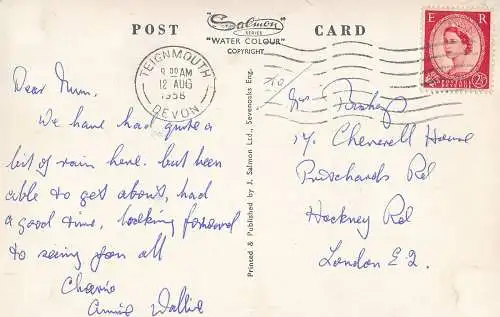 POST
Salmon
SERIES
"WATER COLOUR"
COPYRIGHT
CARD
E R
TEIGNMOUTH
9.00 AM
12 AUG
1958
DEVON
Dear Mum,
We have had quite a
bit of rain here. but been
able to get about, had
a good time, looking forward
to seeing you all
Cheerio
Annie Wallie
Printed & Published by J. Salmon Ltd., Sevenoaks Eng.
Mrs
17, Cheverell House
Pritchards Rd
Hackney Rd
London E 2.